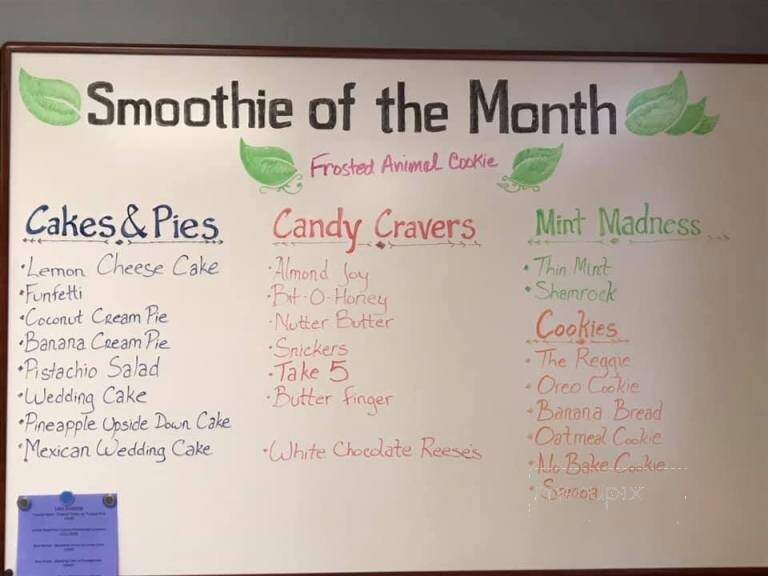 Smoothie of the Month
Frosted Animal Cookie
Cakes & Pies
•Lemon Cheese Cake
•Funfetti
•Coconut Cream Pie
•Banana Cream Pie
•Pistachio Salad
•Wedding Cake
•Pineapple Upside Down Cake
•Mexican Wedding Cake
Candy Cravers
•Almond Joy
•Bit-O-Honey
•Nutter Butter
•Snickers
•Take 5
•Butter Finger
•White Chocolate Reese's
Mint Madness
•Thin Mint
•Shamrock
Cookies
•The Reggie
•Oreo Cookie
•Banana Bread
•Oatmeal Cookie
•No Bake Cookie
•Samoa